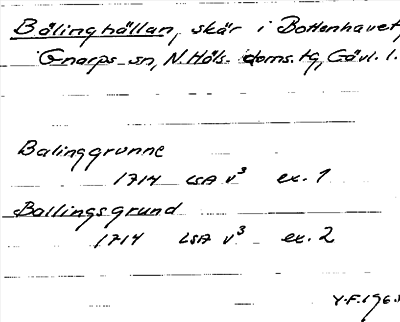 Bålinghällan, skär i Bottenhavet,
Gnarps sn, N. Häls. doms. tg, Gävl. l.
Balinggrunne
1714 LSA V³ ex. 1
Ballingsgrund
1714 LSA V³ ex. 2
Y.F. 1963